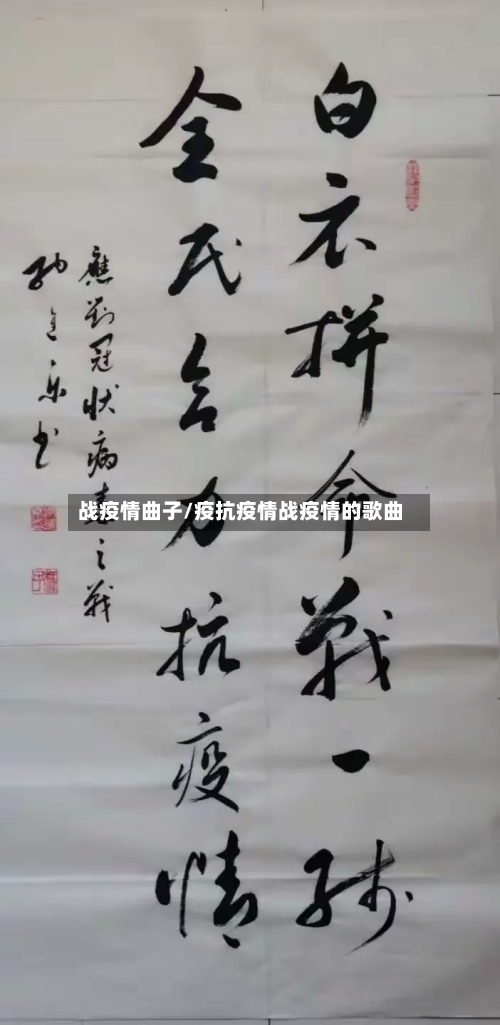 白衣拼命戰一线
全民合力抗疫情
應對冠状病毒之戰
战疫情曲子/疫抗疫情战疫情的歌曲